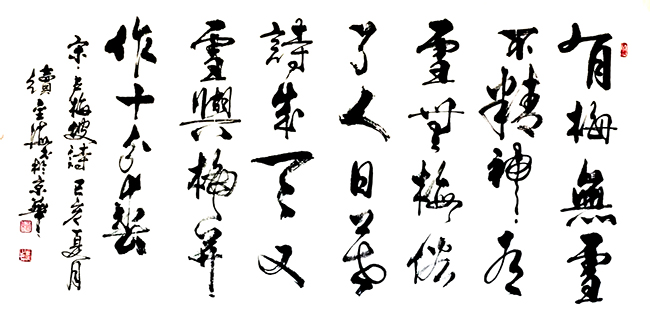 有梅無雪
不精神有
雪無梅俗
了人日暮
詩成天又
雪與梅并
作十分春
宋·卢梅坡詩己亥夏月
於京華